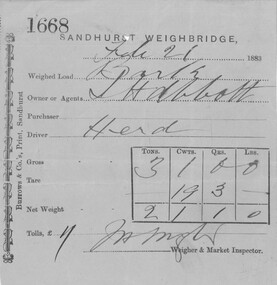 1668
SANDHURST WEIGHBRIDGE,
Feb 26 188
Weighed Load
Owner or Agents Abbott
Purchaser
Driver Herd
TONS. CWTS. QRS. LBS.
Gross 3 1 0 0
Tare 19 3 -
Net Weight 2 1 1 0
Tolls, £
Weigher & Market Inspector.
BURROWS & Co.'s, Print, Sandhurst